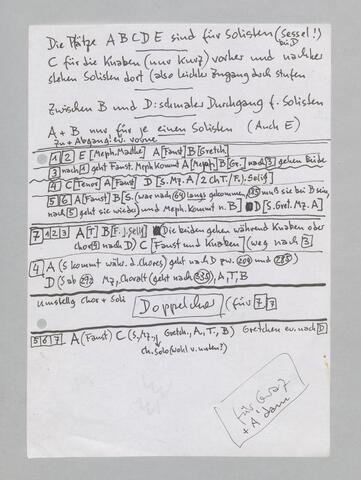 Die Plätze A B C D E sind für Solisten (Sessel!) bei D
C für die Knaben (nur kurz) vorher und nachher
stehen Solisten dort (also leichter Zugang durch Stufen
Zwischen B und D: schmaler Durchgang f. Solisten
A + B nur für je einen Solisten (Auch E)
zu + Abgang ev. vorne
1 2 E [Meph. Marthe] A [Faust] B [Gretch]
3 nach 1 geht Faust. Meph kommt A [Meph] B [Gr.] nach 3 gehen beide
4 C [Tenor A [Faust] D [S. Mz. A / 2 ch. T. / P.
5 6 A [Faust] B [S. (war nach 64 langs. gekommen, muß sie bei B sein,
nach 5 geht sie wieder) und Meph. kommt n. B] D [S. Gret. Mz. A]
7 1 2 3 A [T.] B [ Die beiden gehen während Knaben oder
chor 4 nach D) C [Faust und Knaben] (weg nach 3
4 A (S kommt währ. d. Chores) geht nach D zw. 204 und
D (S ab 292 Mz, Choralt (geht nach 385), A, T, B
Umstellg Chor + Soli Doppelchor (für 7 3
5 6 7 A (Faust) C (S, Mz, Gretch., A, T, B) Gretchen ev. nach D
ch. Solo (wohl v. unten?)
Für Graz
+ A dam